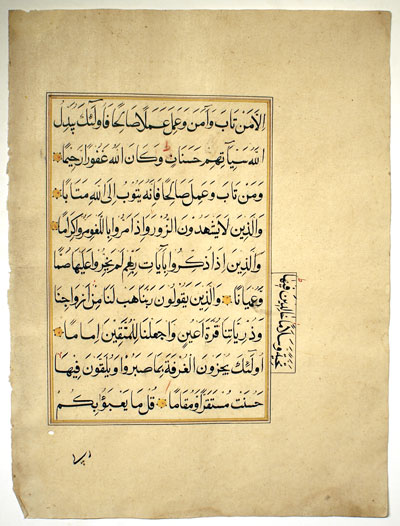 اِلَّا مَنْ تَابَ وَآمَنَ وَعَمِلَ عَمَلًا صَالِحًا فَاُولٰئِكَ يُبَدِّلُ
اللهُ سَيِّآتِهِمْ حَسَنَاتٍ وَكَانَ اللهُ غَفُورًا رَحِيمًا
وَمَنْ تَابَ وَعَمِلَ صَالِحًا فَاِنَّهُ يَتُوبُ اِلَى اللهِ مَتَابًا
وَالَّذِينَ لَا يَشْهَدُونَ الزُّورَ وَاِذَا مَرُّوا بِاللَّغْوِ مَرُّوا كِرَامًا
وَالَّذِينَ اِذَا ذُكِّرُوا بِآيَاتِ رَبِّهِمْ لَمْ يَخِرُّوا عَلَيْهَا صُمًّا
وَعُمْيَانًا وَالَّذِينَ يَقُولُونَ رَبَّنَا هَبْ لَنَا مِنْ اَزْوَاجِنَا
وَذُرِّيَّاتِنَا قُرَّةَ اَعْيُنٍ وَاجْعَلْنَا لِلْمُتَّقِينَ اِمَامًا
اُولٰئِكَ يُجْزَوْنَ الْغُرْفَةَ بِمَا صَبَرُوا وَيُلَقَّوْنَ فِيهَا
تَحِيَّةً وَسَلَامًا خَالِدِينَ فِيهَا
حَسُنَتْ مُسْتَقَرًّا وَمُقَامًا قُلْ مَا يَعْبَؤُا بِكُمْ